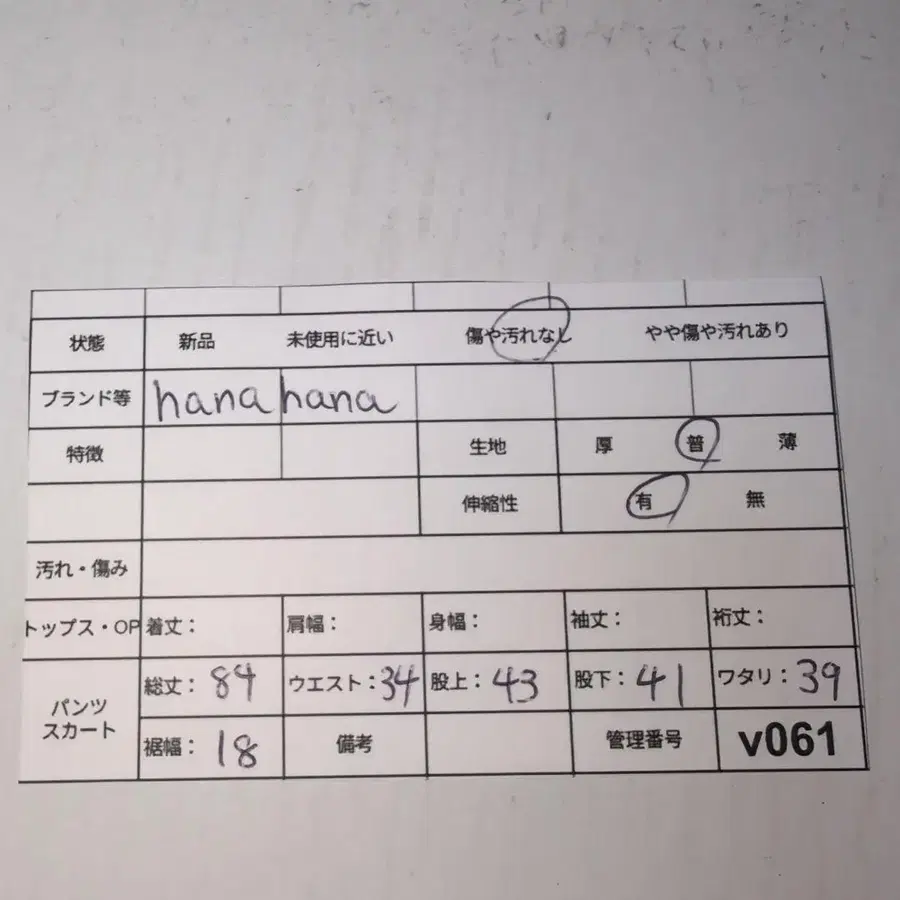 状態 新品 未使用に近い 傷や汚れなし やや傷や汚れあり
ブランド等 hana hana
特徴 生地 厚 普 薄
伸縮性 有 無
汚れ・傷み
トップス・OP 着丈： 肩幅： 身幅： 袖丈： 裄丈：
パンツ スカート 総丈：84 ウエスト：34 股上：43 股下：41 ワタリ：39
裾幅：18 備考 管理番号 v061